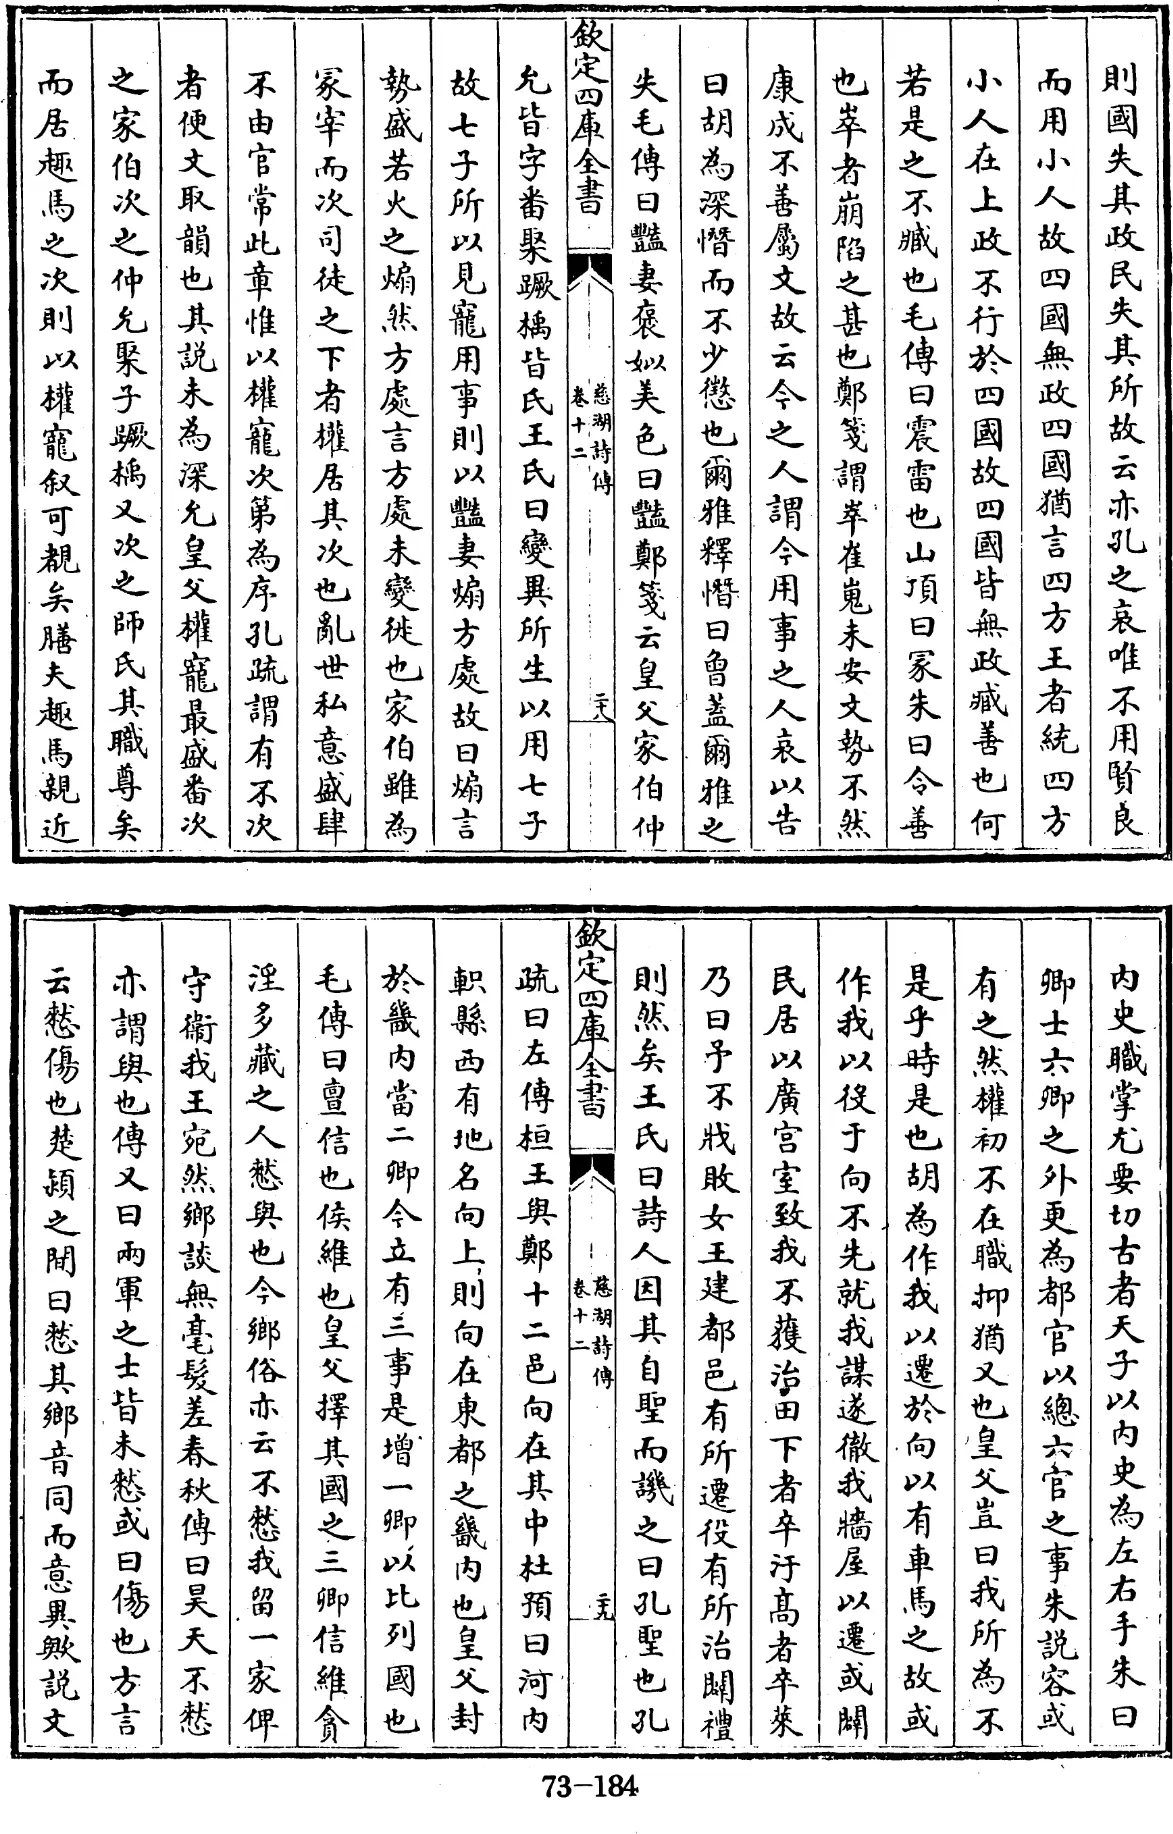 則國失其政民失其所故云亦孔之哀唯不用賢良
而用小人故四國無政四國猶言四方王者統四方
小人在上政不行於四國故四國皆無政臧善也何
若是之不臧也毛傳曰震雷也山頂曰冢朱曰令善
也崒者崩陷之甚也鄭箋謂崒崔嵬未安文勢不然
康成不善屬文故云今之人謂今用事之人哀以告
曰胡為深憯而不少懲也爾雅釋憯曰曾蓋爾雅之
失毛傳曰豔妻褒姒美色曰豔鄭箋云皇父家伯仲
欽定四庫全書
慈湖詩傳
卷十二
二十八
允皆字番聚蹶楀皆氏王氏曰變異所生以用七子
故七子所以見寵用事則以豔妻煽方處故曰煽言
勢盛若火之煽然方處言方處未變徙也家伯雖為
冢宰而次司徒之下者權居其次也亂世私意盛肆
不由官常此章惟以權寵次第為序孔疏謂有不次
者便文取韻也其説未為深允皇父權寵最盛番次
之家伯次之仲允聚子蹶楀又次之師氏其職尊矣
而居趣馬之次則以權寵叙可覩矣膳夫趣馬親近
内史職掌尤要切古者天子以内史為左右手朱曰
卿士六卿之外更為都官以總六官之事朱説容或
有之然權初不在職抑猶又也皇父豈曰我所為不
是乎時是也胡為作我以遷於向以有車馬之故或
作我以役于向不先就我謀遂徹我牆屋以遷或闢
民居以廣宫室致我不獲治田下者卒汙髙者卒萊
乃曰予不戕敗女王建都邑有所遷役有所治闢禮
則然矣王氏曰詩人因其自聖而譏之曰孔聖也孔
欽定四庫全書
慈湖詩傳
卷十二
二十九
疏曰左傳桓王與鄭十二邑向在其中杜預曰河内
軹縣西有地名向上則向在東都之畿内也皇父封
於畿内當二卿今立有三事是増一卿以比列國也
毛傳曰亶信也侯維也皇父擇其國之三卿信維貪
淫多藏之人憖與也今鄉俗亦云不憖我留一家俾
守衞我王宛然鄉談無毫髮差春秋傳曰昊天不憖
亦謂與也傳又曰兩軍之士皆未憖或曰傷也方言
云憖傷也楚潁之間曰憖其鄉音同而意異歟説文
73-184